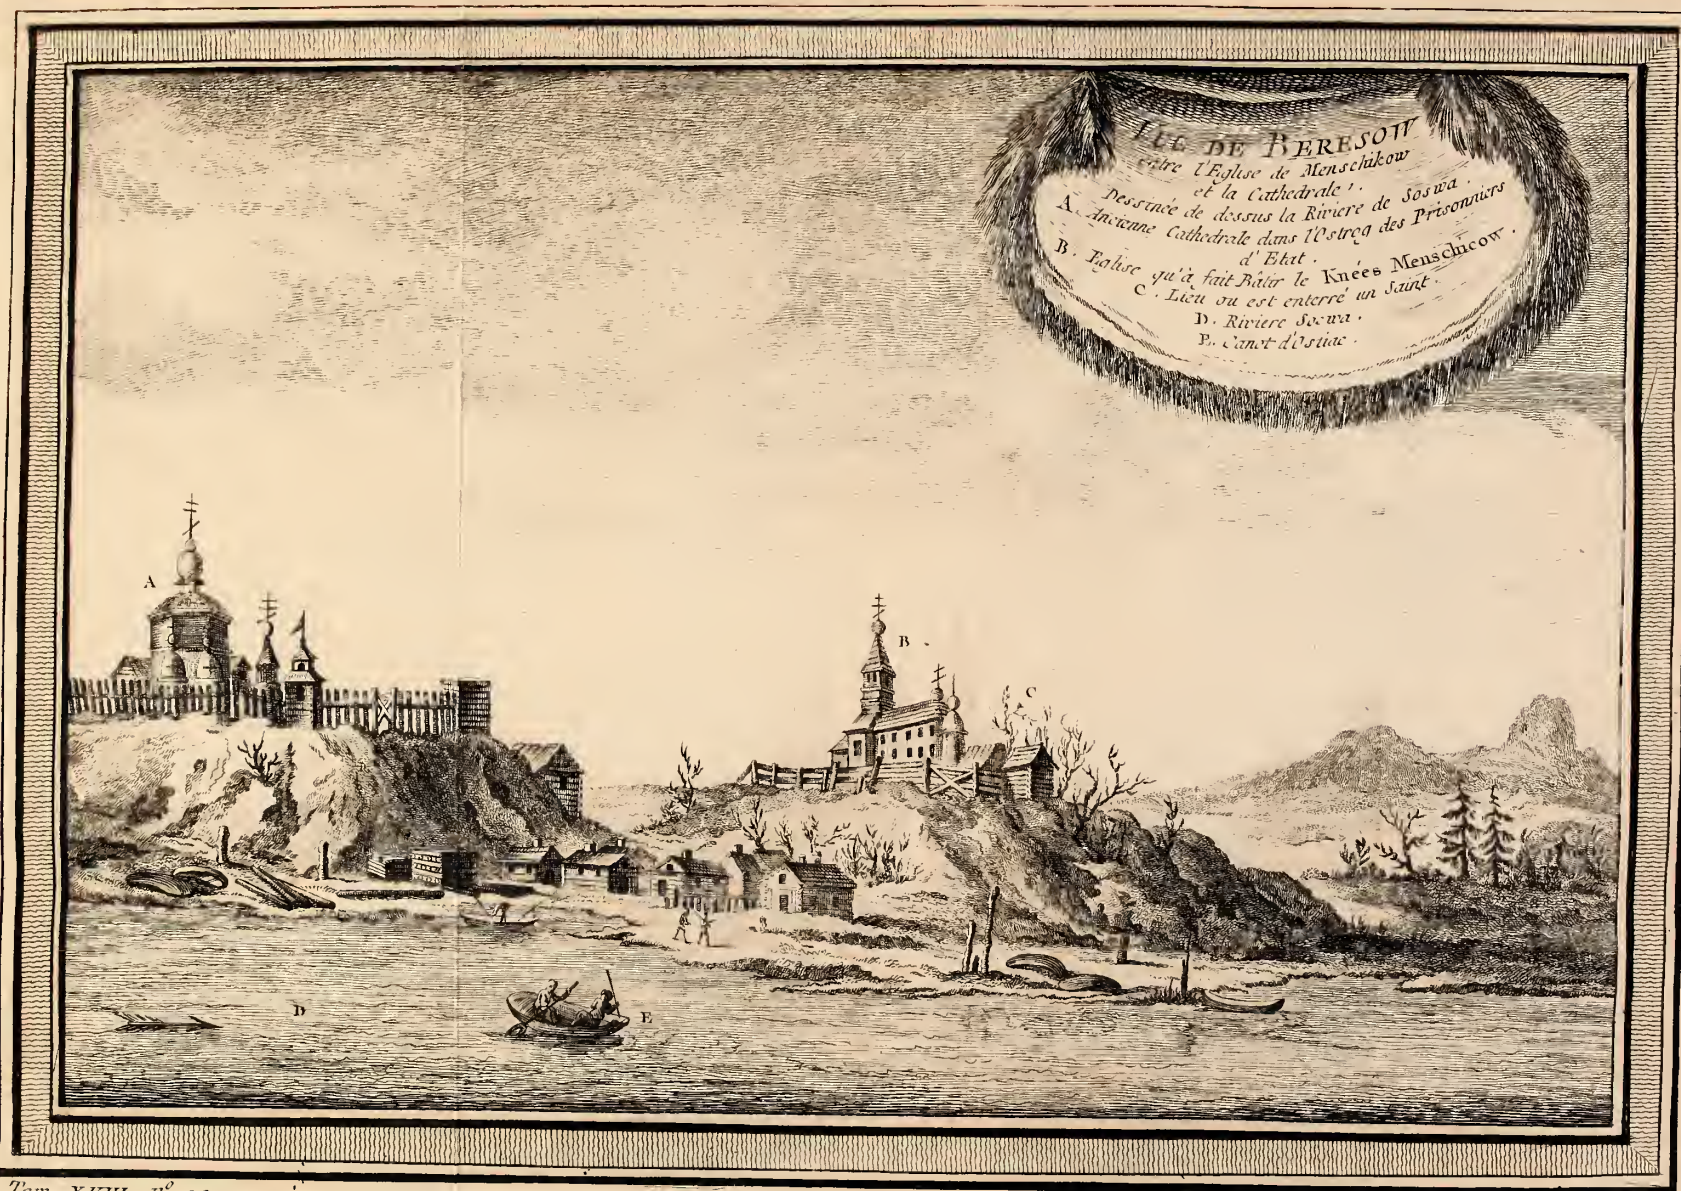 VUE DE BERESOW
entre l'Eglise de Menschikow
et la Cathedrale,.
Dessinée de dessus la Riviere de Soswa.
A. Ancienne Cathedrale dans l'Ostrog des Prisonniers
d'Etat.
B. Eglise qu'à fait Bâtir le Knées Menschicow.
C. Lieu ou est enterré un Saint.
D. Riviere Soswa.
E. Canot d'Ostiac.
A
B
C
D
E
Tom. XVIII